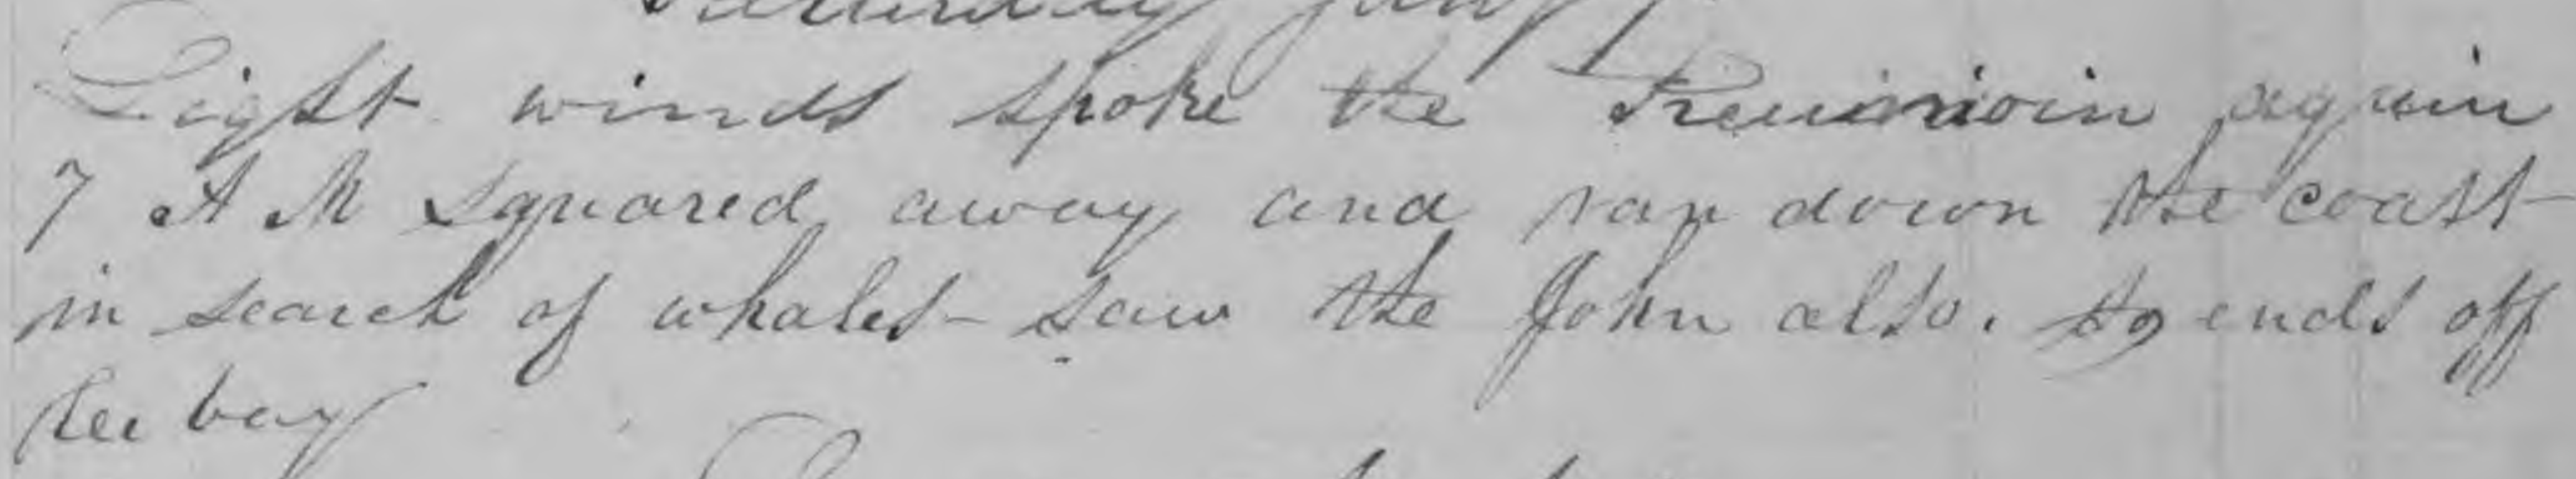 Saturday Jany
Light winds spoke the Reunioin again
7 A M squared away and ran down the coast
in search of whales - saw the John also. so ends off
bay